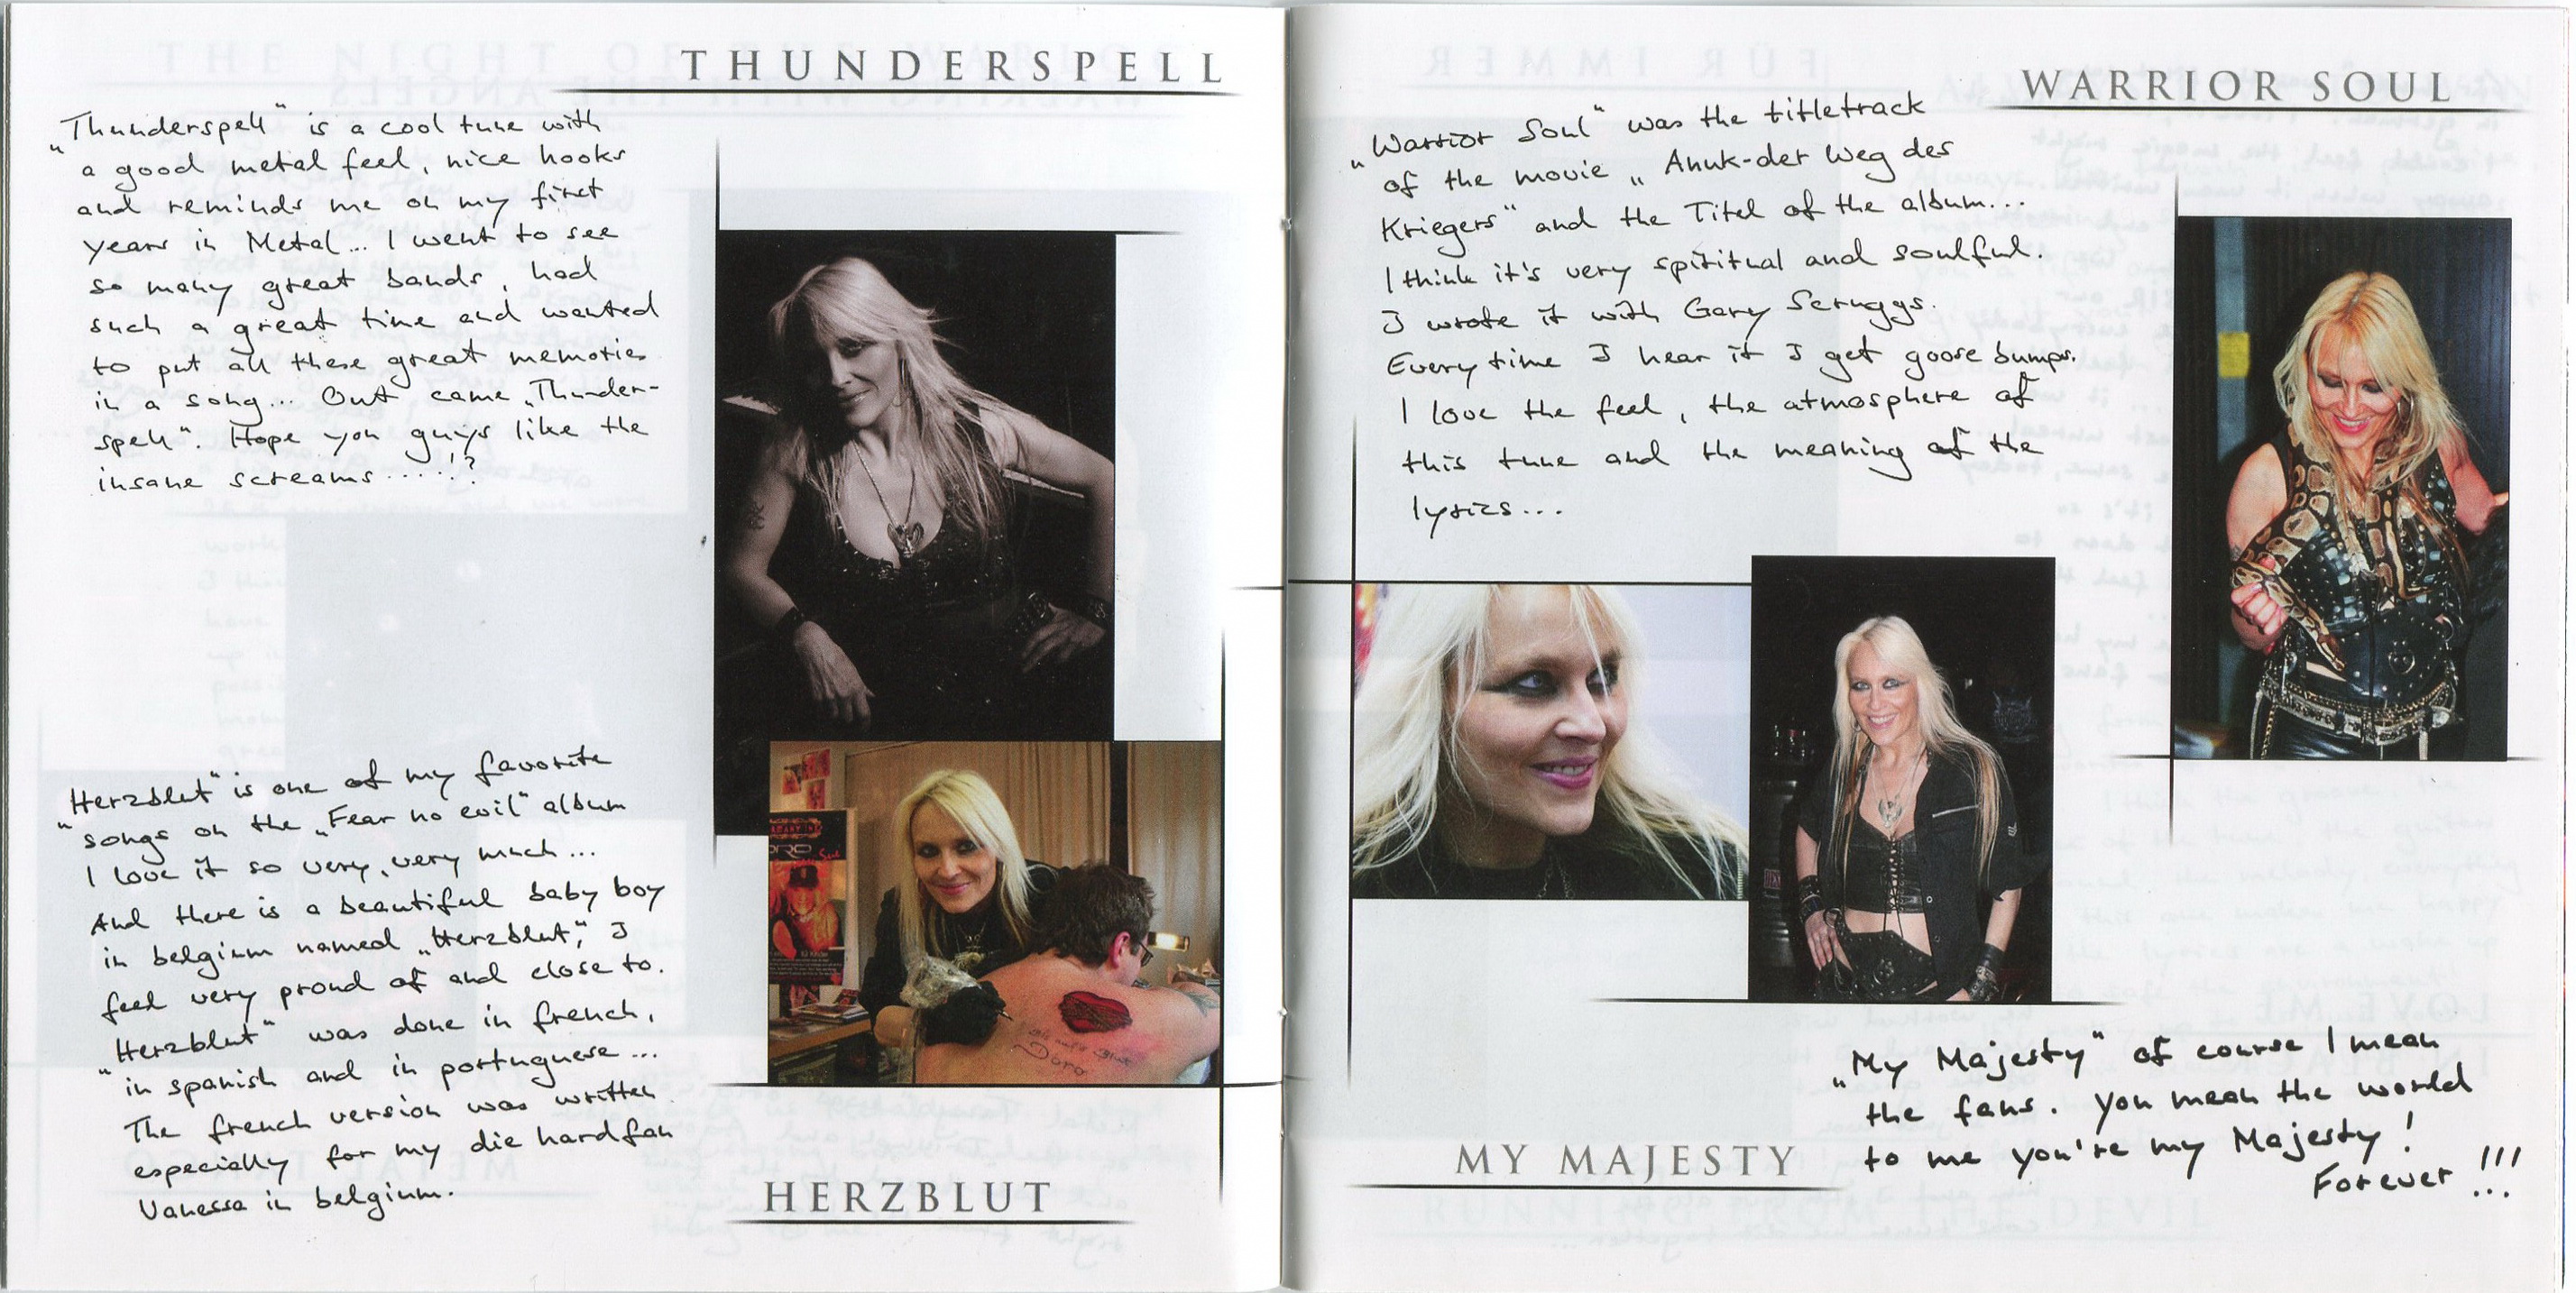 THUNDERSPELL
„Thunderspell“ is a cool tune with
a good metal feel, nice hooks
and reminds me on my first
years in Metal... I went to see
so many great bands, had
such a great time and wanted
to put all these great memories
in a song... Out came „Thunder-
spell“. Hope you guys like the
insane screams.....!?
„Herzblut“ is one of my favorite
songs on the „Fear no evil“ album
I love it so very, very much...
And there is a beautiful baby boy
in belgium named „Herzblut“, I
feel very proud of and close to.
„Herzblut“ was done in french,
in spanish and in portuguese...
The french version was written
especially for my die hardfan
Vanessa in belgium.
Doro
HERZBLUT
WARRIOR SOUL
„Warrior Soul“ was the titletrack
of the movie „Anuk-der Weg des
Kriegers“ and the Titel of the album...
I think it's very spiritual and soulful.
I wrote it with Gary Scruggs.
Every time I hear it I get goose bumps.
I love the feel, the atmosphere of
this tune and the meaning of the
lyrics...
„My Majesty“ of course I mean
the fans. You mean the world
to me you're my Majesty!
Forever !!!
MY MAJESTY